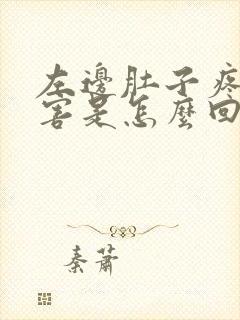 左邊肚子疼
害是怎麼回
秦蕭